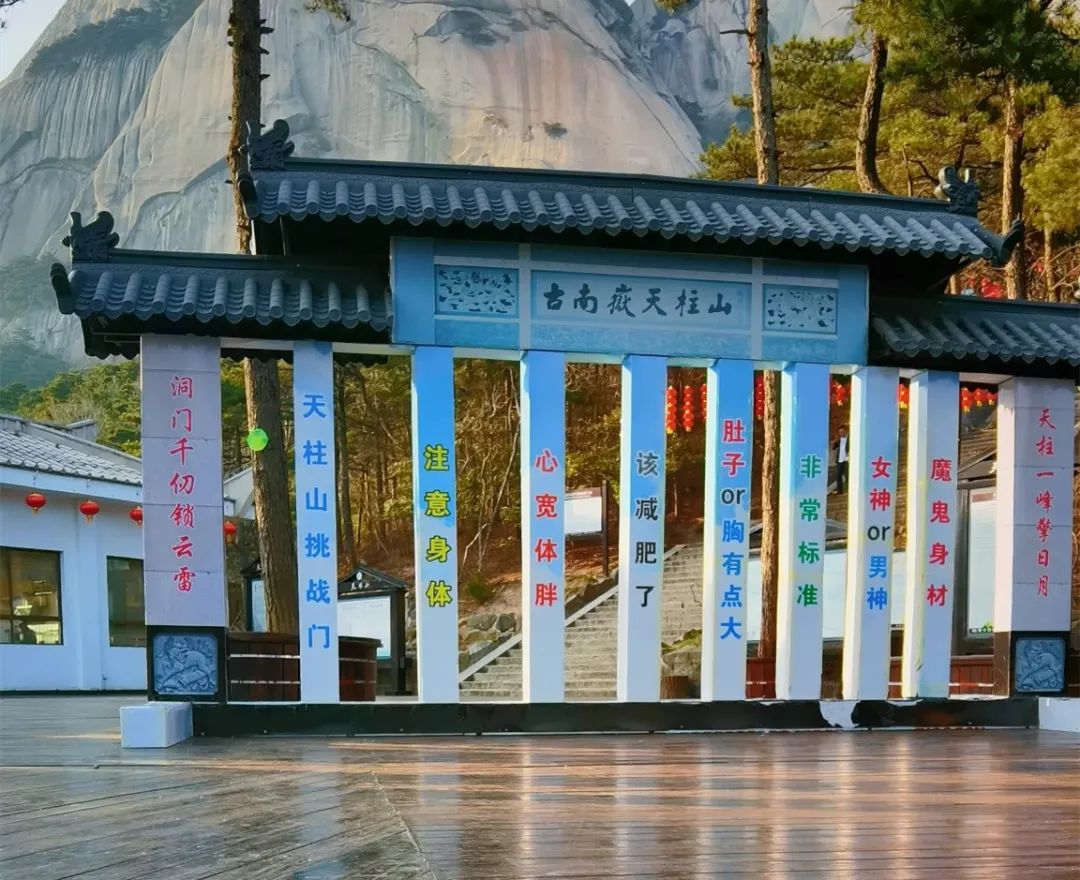 古南嶽天柱山
洞门千仞锁云雷
天柱山挑战门
注意身体
心宽体胖
该减肥了
肚子or胸有点大
非常标准
女神or男神
魔鬼身材
天柱一峰擎日月